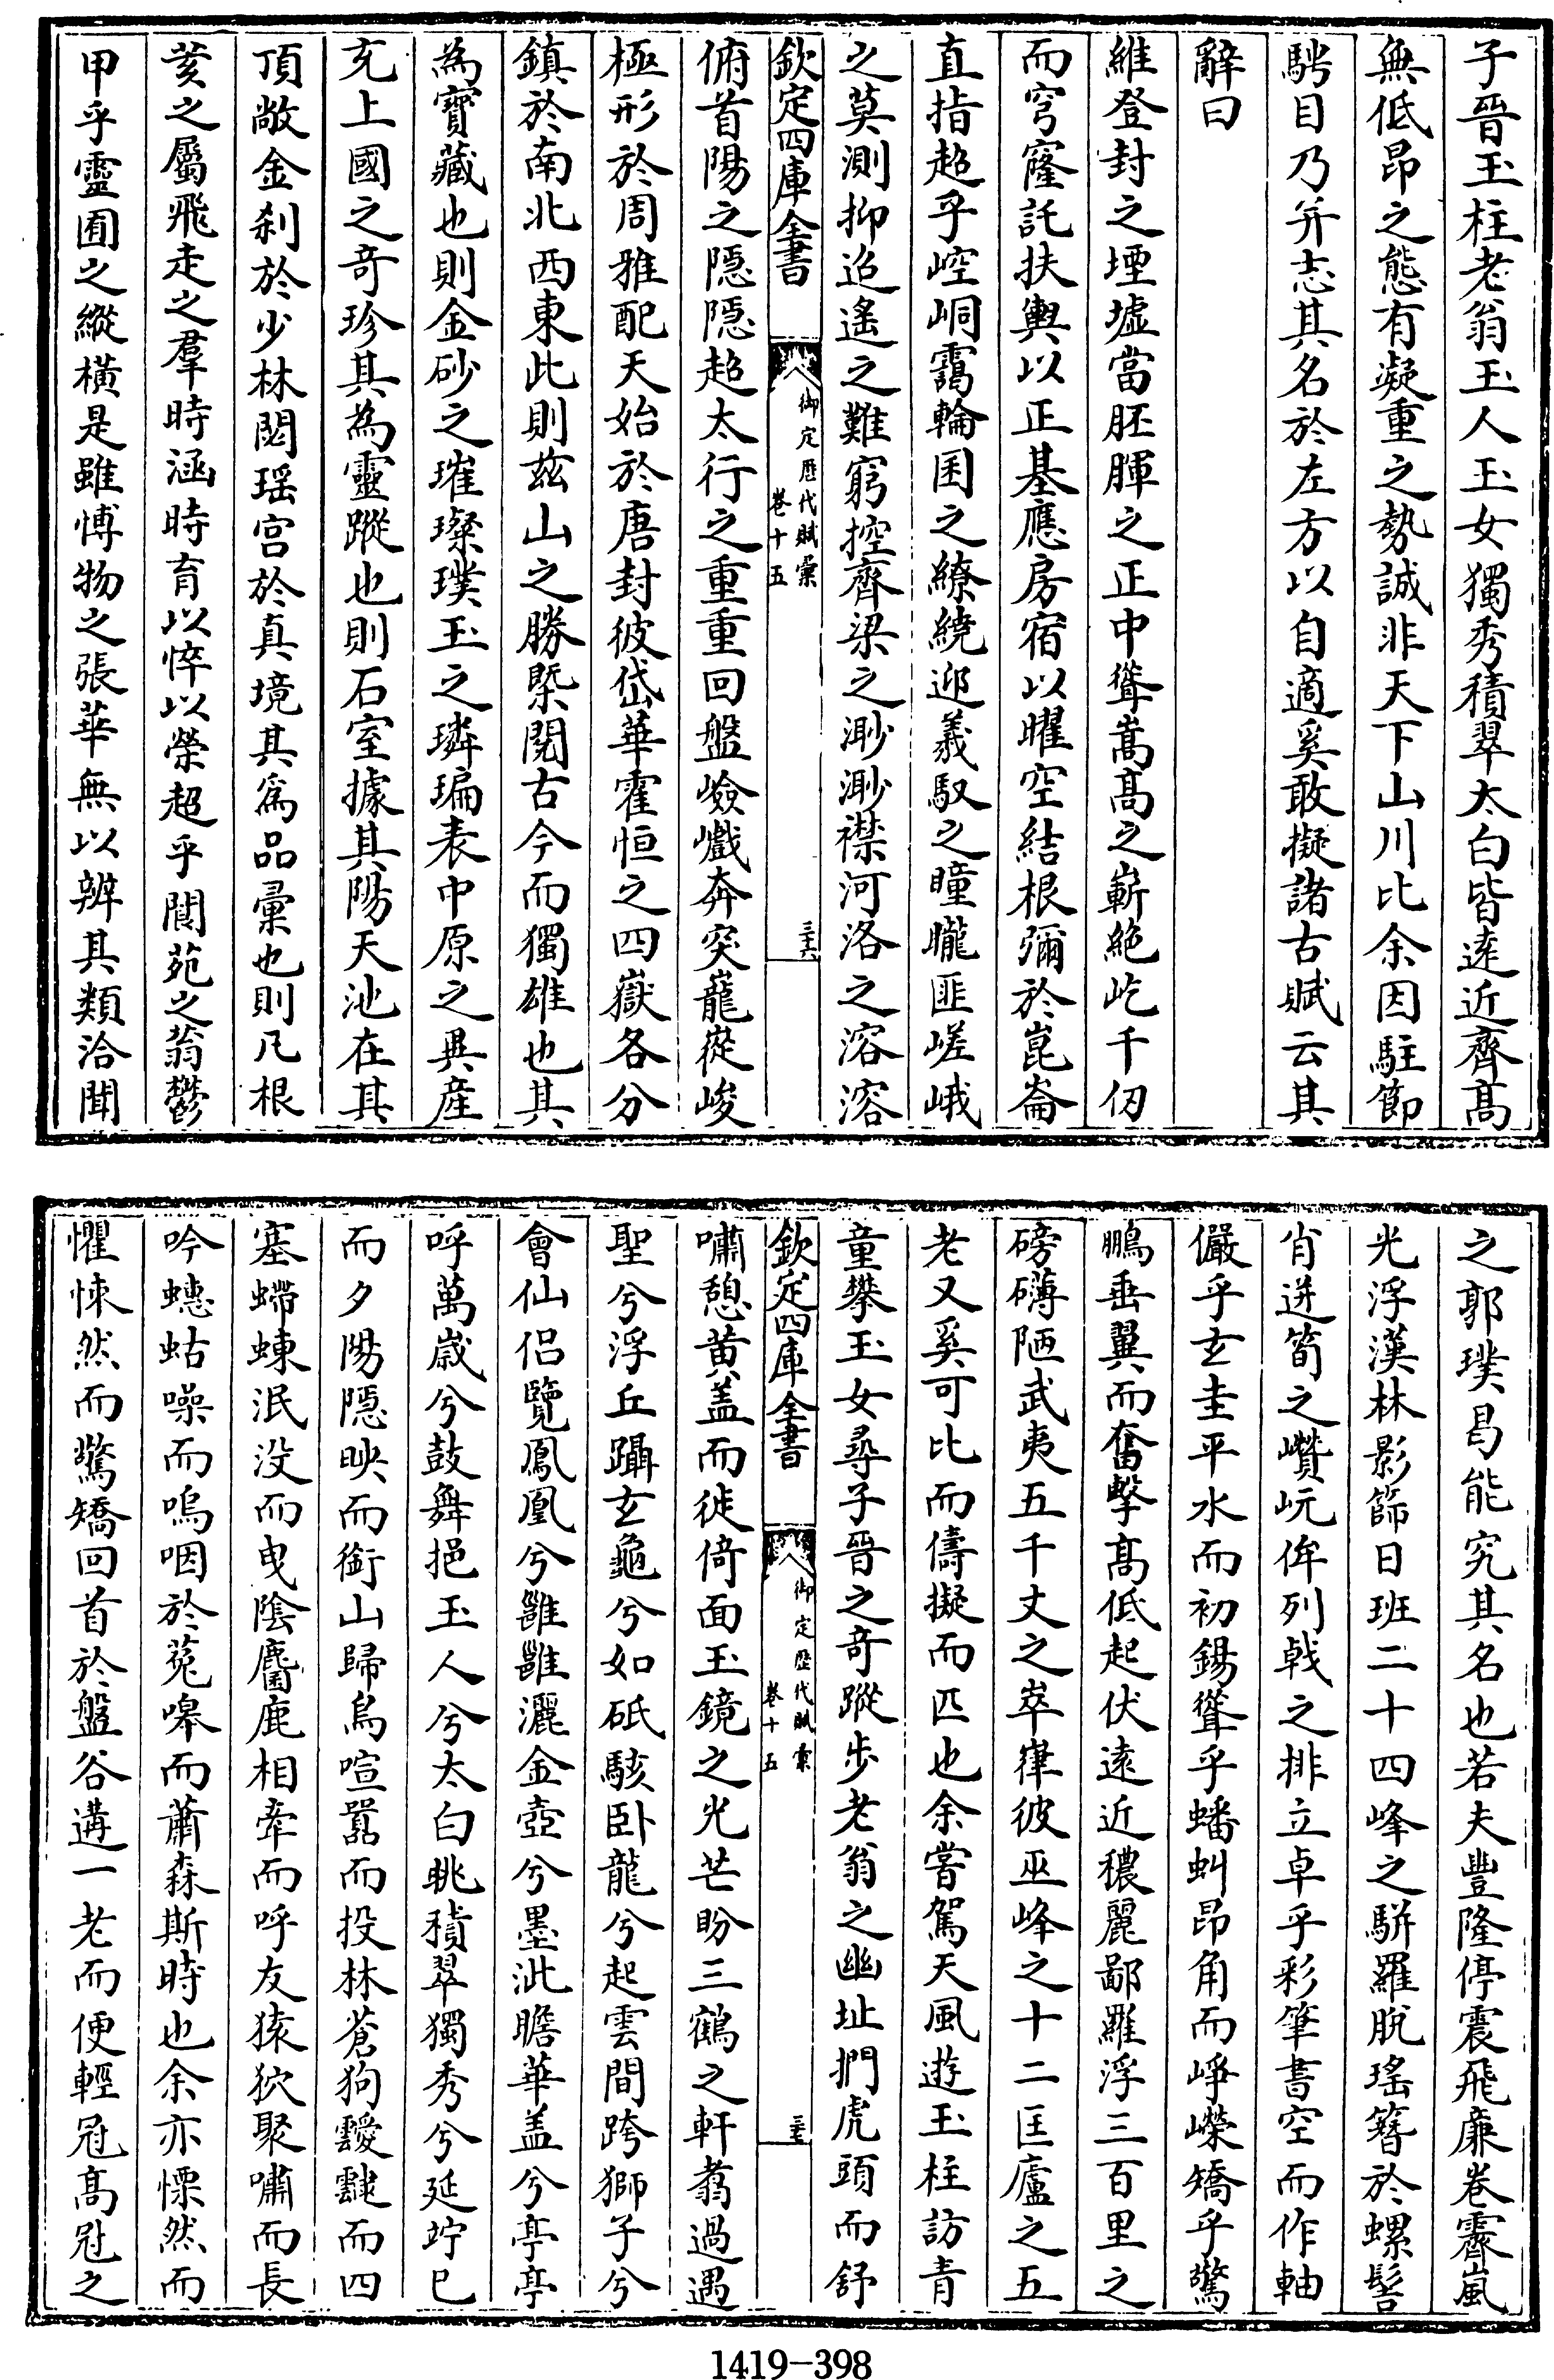 子晉玉柱老翁玉人玉女獨秀積翠太白皆逺近齊髙
無低昻之態有凝重之勢誠非天下山川比余因駐節
騁目乃并志其名於左方以自適奚敢擬諸古賦云其
辭曰
維登封之堙墟當胚腪之正中聳嵩髙之嶄絶屹千仞
而穹窿託扶輿以正基應房宿以曜空結根彌於崑崙
直指超乎崆峒靄輪囷之繚繞迎羲馭之曈曨匪嵯峨
之莫測抑迢遙之難窮控齊梁之渺渺襟河洛之溶溶
欽定四庫全書
御定歴代賦彙
卷十五
三十六
俯首陽之隠隠超太行之重重回盤嶮巇奔突巃嵷峻
極形於周雅配天始於唐封彼岱華霍恒之四嶽各分
鎮於南北西東此則兹山之勝槩閱古今而獨雄也其
為寳藏也則金砂之璀璨璞玉之璘㻞表中原之異産
充上國之竒珍其為靈蹤也則石室據其陽天池在其
頂敞金刹於少林閟瑶宫於真境其為品彙也則凡根
荄之屬飛走之羣時涵時育以悴以榮超乎閬苑之蓊鬱
甲乎靈囿之縱横是雖博物之張華無以辨其類洽聞
之郭璞曷能究其名也若夫豐隆停震飛廉卷霽嵐
光浮漢林影篩日班二十四峰之駢羅脱瑤簪於螺髻
肖迸筍之巑岏侔列㦸之排立卓乎彩筆書空而作軸
儼乎玄圭平水而初錫聳乎蟠虯昻角而崢嶸矯乎驚
鵬垂翼而奮擊髙低起伏逺近穠麗鄙羅浮三百里之
磅礴陋武夷五千丈之崒嵂彼巫峰之十二匡廬之五
老又奚可比而儔擬而匹也余嘗駕天風遊玉柱訪青
童攀玉女尋子晉之竒蹤步老翁之幽址捫虎頭而舒
欽定四庫全書
御定歴代賦彙
卷十五
三十七
嘯憩黄盖而徙倚面玉鏡之光芒盼三鶴之軒翥過遇
聖兮浮丘躡玄龜兮如砥駭卧龍兮起雲間跨獅子兮
會仙侣覽鳳凰兮雝雝灑金壺兮墨泚瞻華盖兮亭亭
呼萬嵗兮鼓舞挹玉人兮太白眺積翠獨秀兮延竚已
而夕陽隠映而銜山歸烏喧囂而投林蒼狗靉靆而四
塞螮蝀泯没而曵陰麕鹿相牽而呼友猿狖聚嘯而長
吟蟪蛄噪而嗚咽於菟嘷而蕭森斯時也余亦慄然而
懼悚然而驚矯回首於盤谷遘一老而便輕冠髙冠之
1419-398